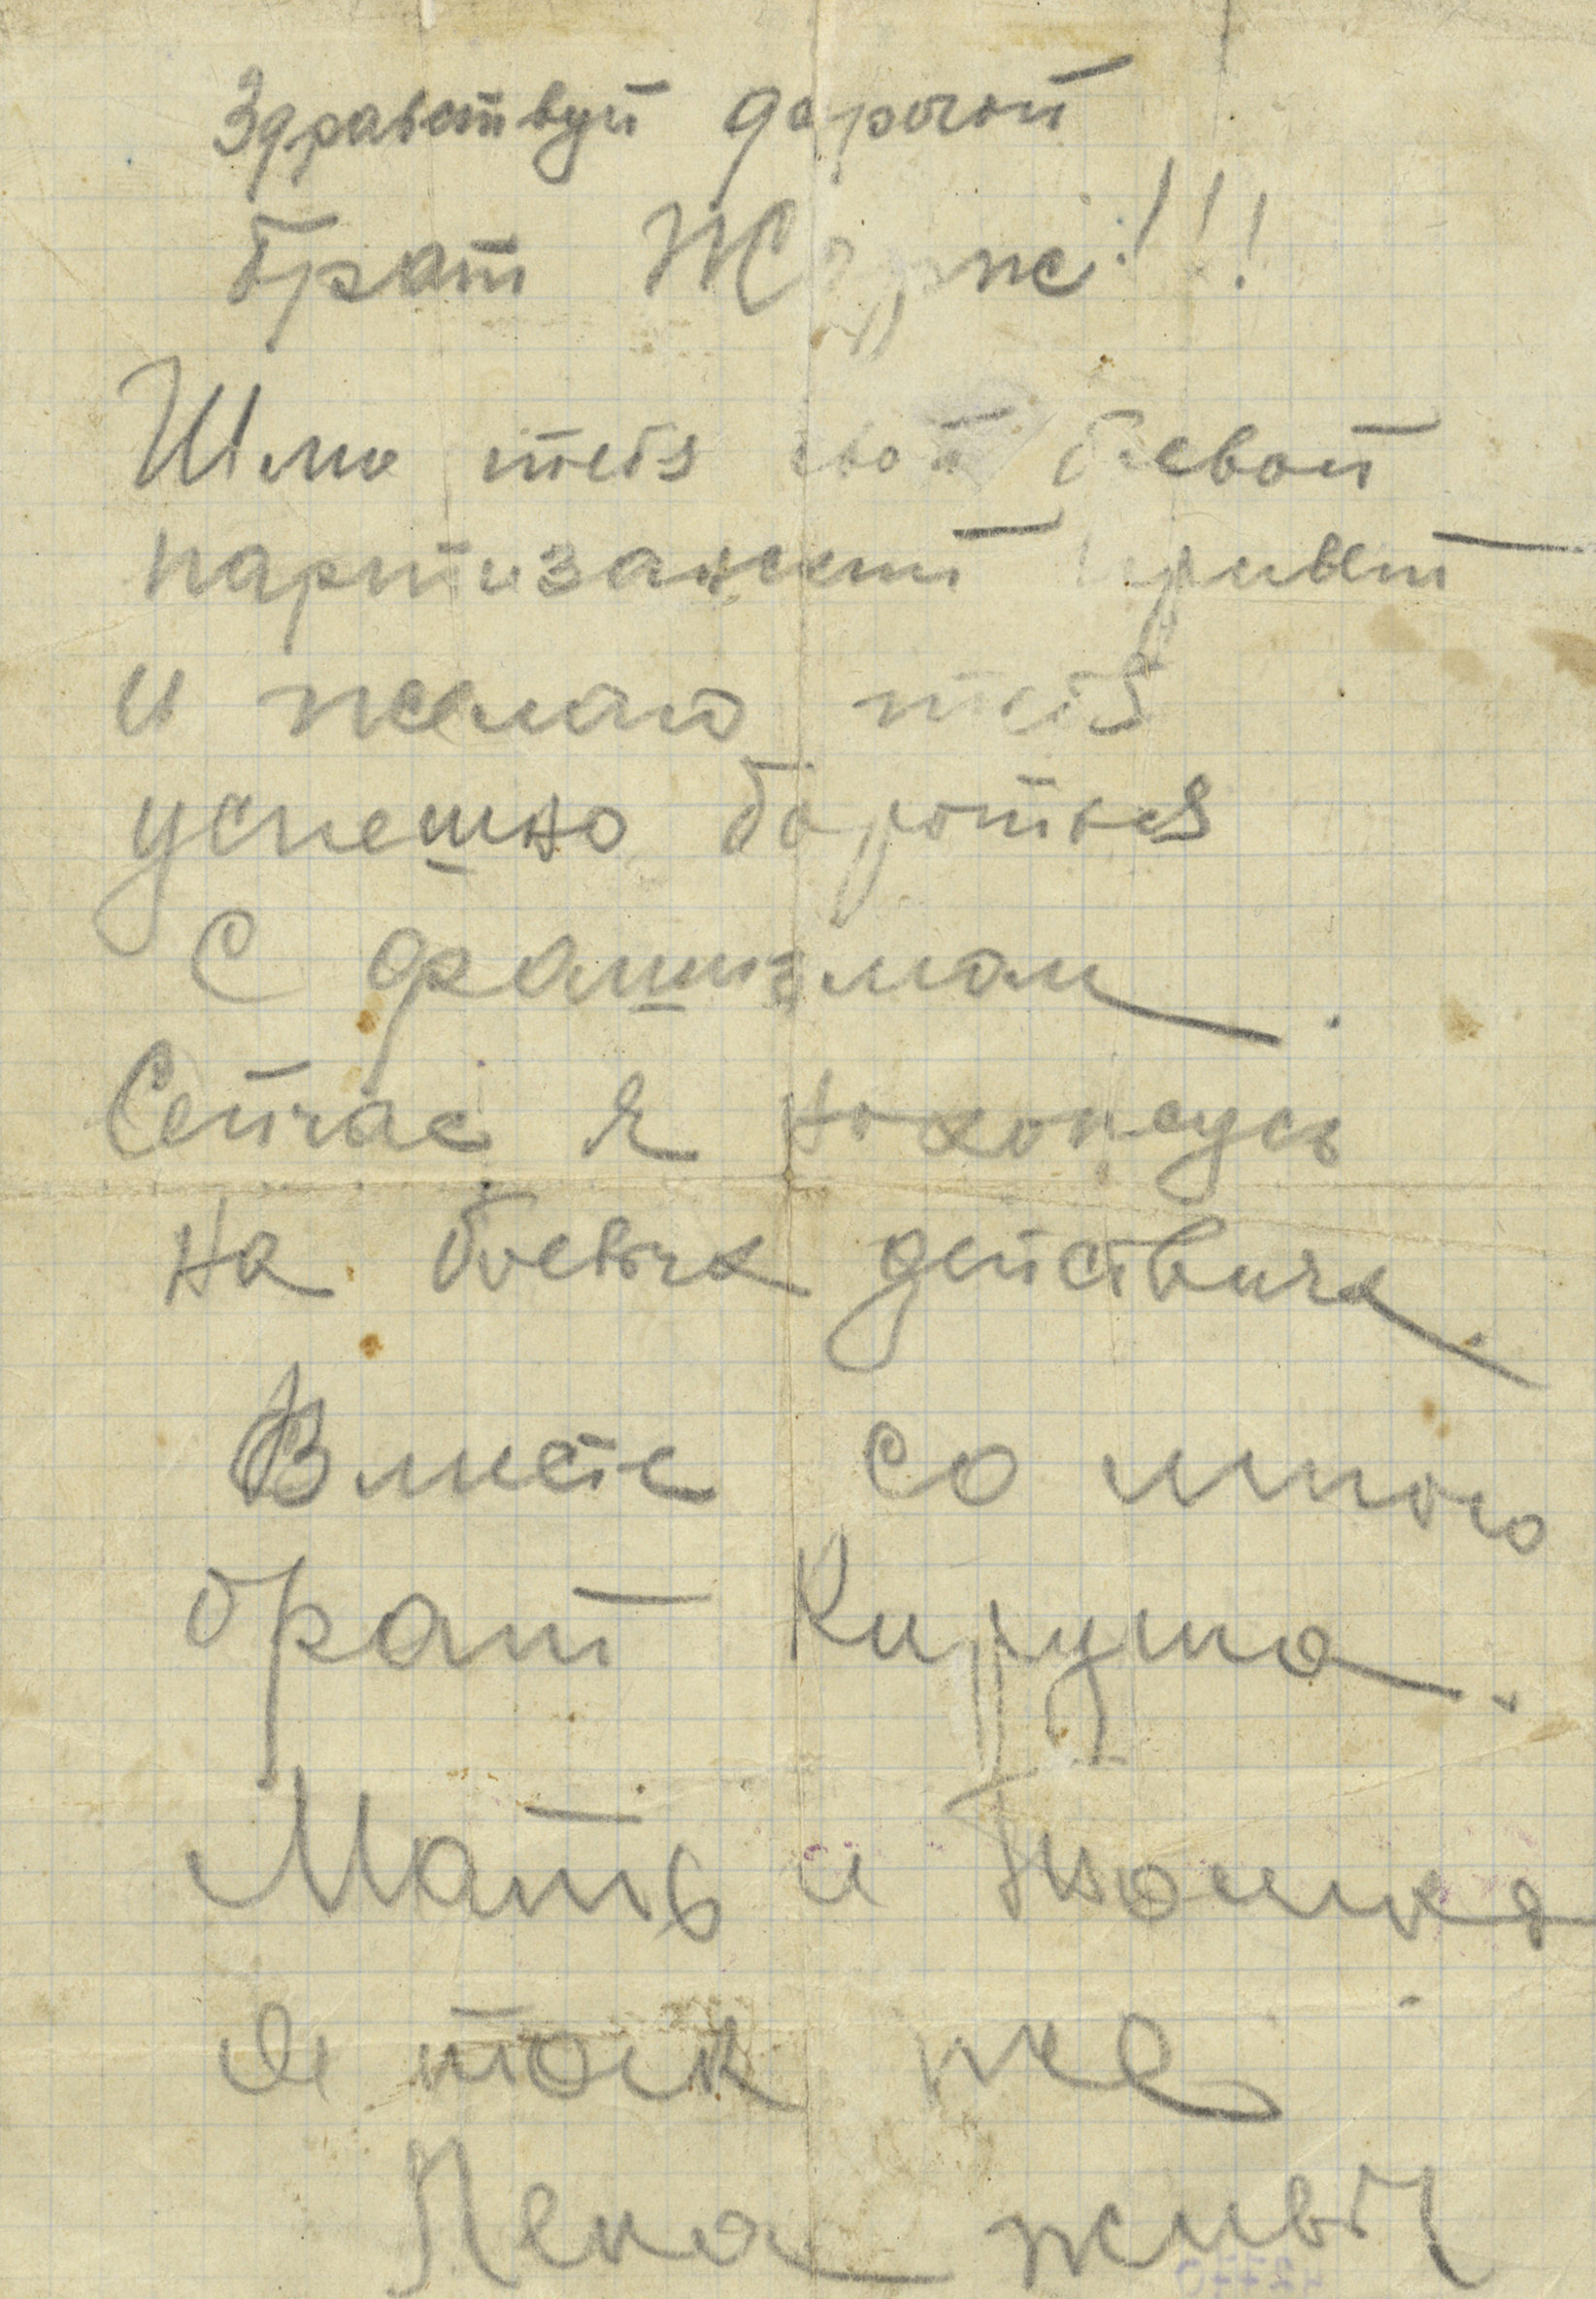 Здравствуй дорогой
брат Жорж!!!
Шлю тебя свой боевой
партизанский привет
и желаю тебя
успешно бороться
С фашизмом.
Сейчас я нахожусь
на боевых действиях.
Вместе со мною
брат Кируша.
Мать и
и так же
Лека живы